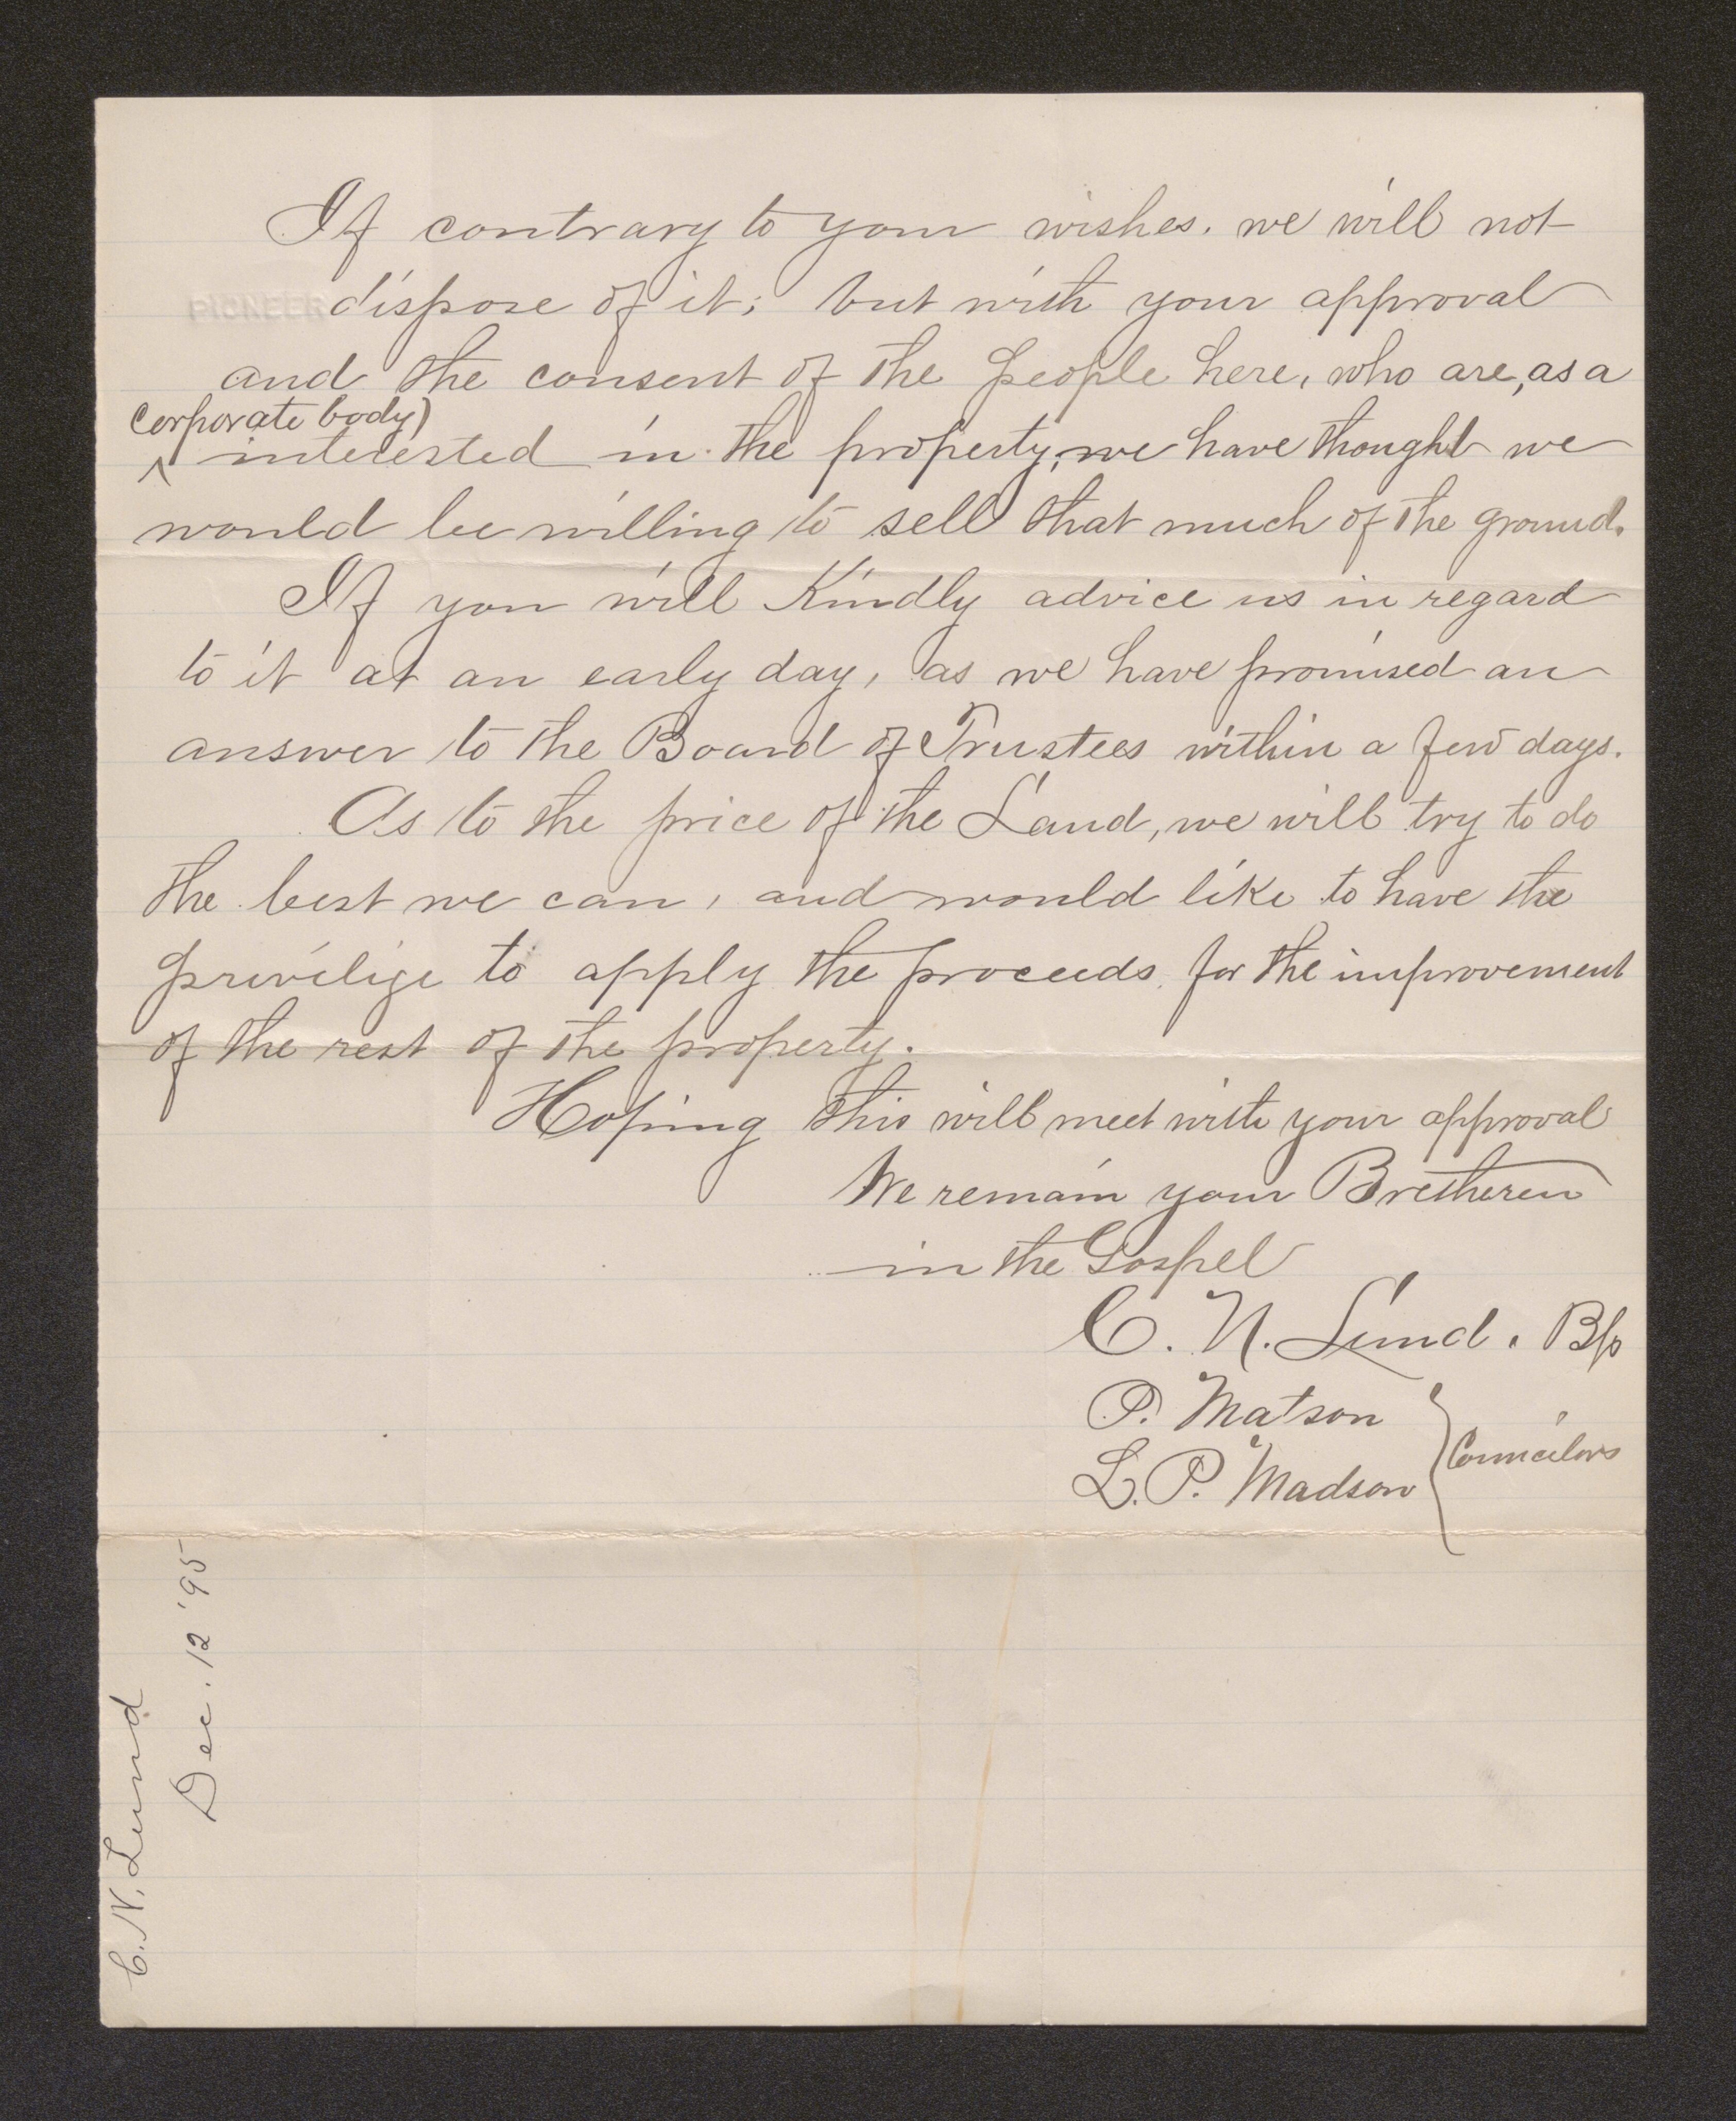 If contrary to your wishes. we will not
PIONEER
dispose of it; but with your approval
and the consent of the people here, who are, as a
corporate body)
^ interested in the property, we have thought we
would be willing to sell that much of the ground.
If you will Kindly advice us in regard
to it at an early day, as we have promised an
answer to the Board of Trustees within a few days.
As to the price of the Land, we will try to do
the best we can, and would like to have the
privilige to apply the proceeds for the improvement
of the rest of the property.
Hoping this will meet with your approval
We remain your Bretheren
in the Gospel
C. N. Lund. Bp
P. Matson
L. P. Madson } Councilors
C. N. Lund
Dec. 12 '95